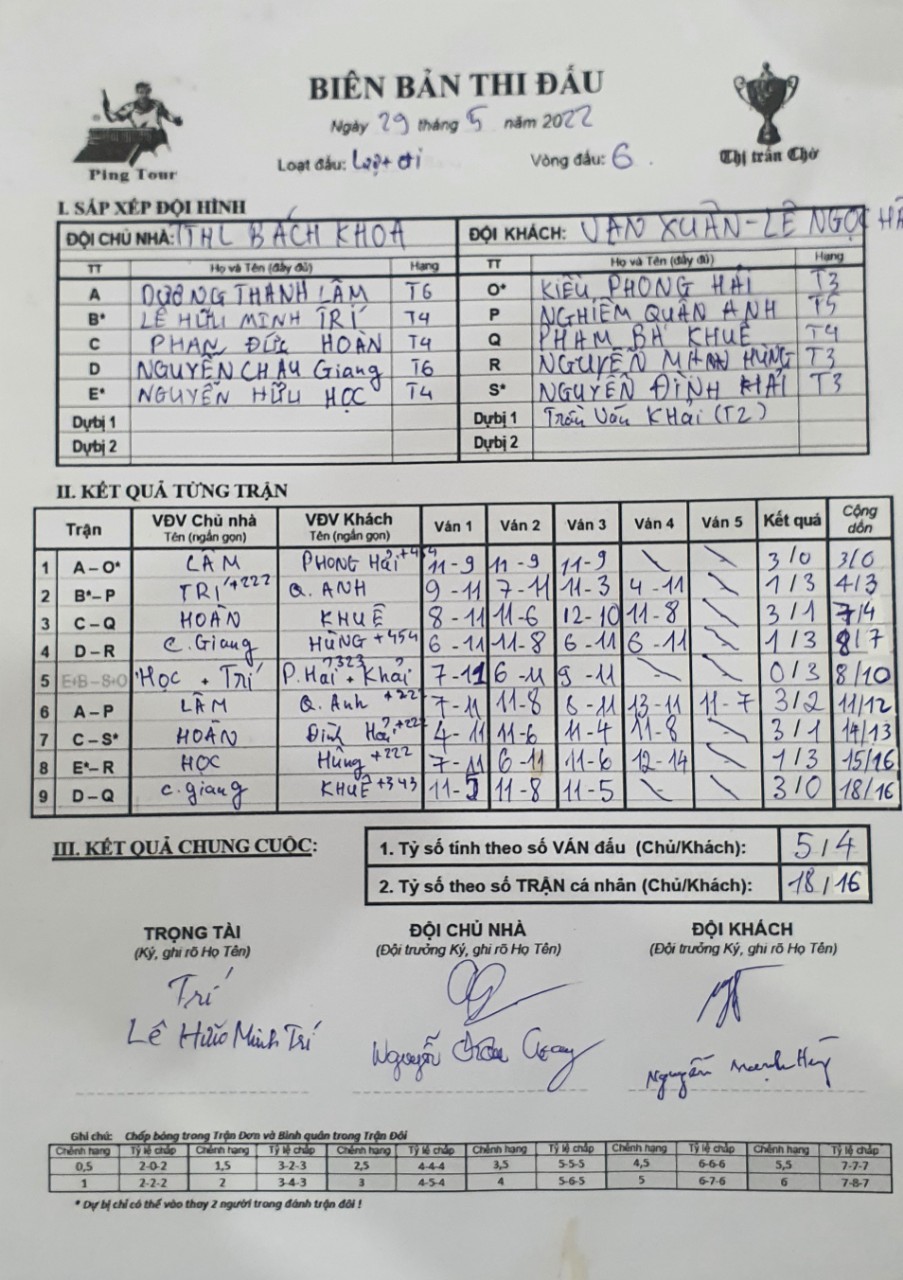 BIÊN BẢN THI ĐẤU
Ngày 29 tháng 5 năm 2022
Loạt đấu: Lượt đi Vòng đấu: 6
Ping Tour
Thị trấn Chờ
I. SẮP XẾP ĐỘI HÌNH
ĐỘI CHỦ NHÀ: TTHL BÁCH KHOA ĐỘI KHÁCH: VẠN XUÂN-LÊ NGỌC HÂ
TT Họ và Tên (đầy đủ) Hạng TT Họ và Tên (đầy đủ) Hạng
A DƯƠNG THANH LÂM T6 O* KIỀU PHONG HẢI T3
B* LÊ HỮU MINH TRÍ T4 P NGHIÊM QUÂN ANH T5
C PHAN ĐỨC HOÀN T4 Q PHẠM BÁ KHUÊ T4
D NGUYỄN CHÂU Giang T6 R NGUYỄN MẠNH HÙNG T3
E* NGUYỄN HỮU HỌC T4 S* NGUYỄN ĐÌNH HẢI T3
Dựbị 1 Dựbị 1 Trần Văn KHải (T2)
Dựbị 2 Dựbị 2
II. KẾT QUẢ TỪNG TRẬN
Trận VĐV Chủ nhà Tên (ngắn gọn) VĐV Khách Tên (ngắn gọn) Ván 1 Ván 2 Ván 3 Ván 4 Ván 5 Kết quả Cộng dồn
1 A – O* LÂM PHONG Hải +454 11-9 11-9 11-9 \ \ 3/0 3/0
2 B* – P TRÍ +222 Q. ANH 9-11 7-11 11-3 4-11 \ 1/3 4/3
3 C – Q HOÀN KHUÊ 8-11 11-6 12-10 11-8 \ 3/1 7/4
4 D – R C. Giang HÙNG +454 6-11 11-8 6-11 6-11 \ 1/3 8/7
5 E+B – S+O Học + Trí P. Hải +323 Khải 7-11 6-11 9-11 \ \ 0/3 8/10
6 A – P LÂM Q. Anh +22 7-11 11-8 6-11 13-11 11-7 3/2 11/12
7 C – S* HOÀN Đình Hải +222 4-11 11-6 11-4 11-8 \ 3/1 14/13
8 E* – R HỌC Hùng +222 7-11 6-11 11-6 12-14 \ 1/3 15/16
9 D – Q C. giang KHUÊ +343 11-2 11-8 11-5 \ \ 3/0 18/16
III. KẾT QUẢ CHUNG CUỘC:
1. Tỷ số tính theo số VÁN đấu (Chủ/Khách): 5/4
2. Tỷ số theo số TRẬN cá nhân (Chủ/Khách): 18/16
TRỌNG TÀI ĐỘI CHỦ NHÀ ĐỘI KHÁCH
(Ký, ghi rõ Họ Tên) (Đội trưởng Ký, ghi rõ Họ Tên) (Đội trưởng Ký, ghi rõ Họ Tên)
Trí
Lê Hữu Minh Trí
Nguyễn Châu Giang
Nguyễn Mạnh Hùng
Ghi chú: Chấp bóng trong Trận Đơn và Bình quân trong Trận Đôi
Chênh hạng Tỷ lệ chấp Chênh hạng Tỷ lệ chấp Chênh hạng Tỷ lệ chấp Chênh hạng Tỷ lệ chấp Chênh hạng Tỷ lệ chấp Chênh hạng Tỷ lệ chấp
0,5 2-0-2 1,5 3-2-3 2,5 4-4-4 3,5 5-5-5 4,5 6-6-6 5,5 7-7-7
1 2-2-2 2 3-4-3 3 4-5-4 4 5-6-5 5 6-7-6 6 7-8-7
* Dự bị chỉ có thể vào thay 2 người trong đánh trận đôi !